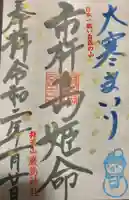 大寒まいり
日本一低い自然の山
市杵島姫命
奉拝 令和二年一月廿日